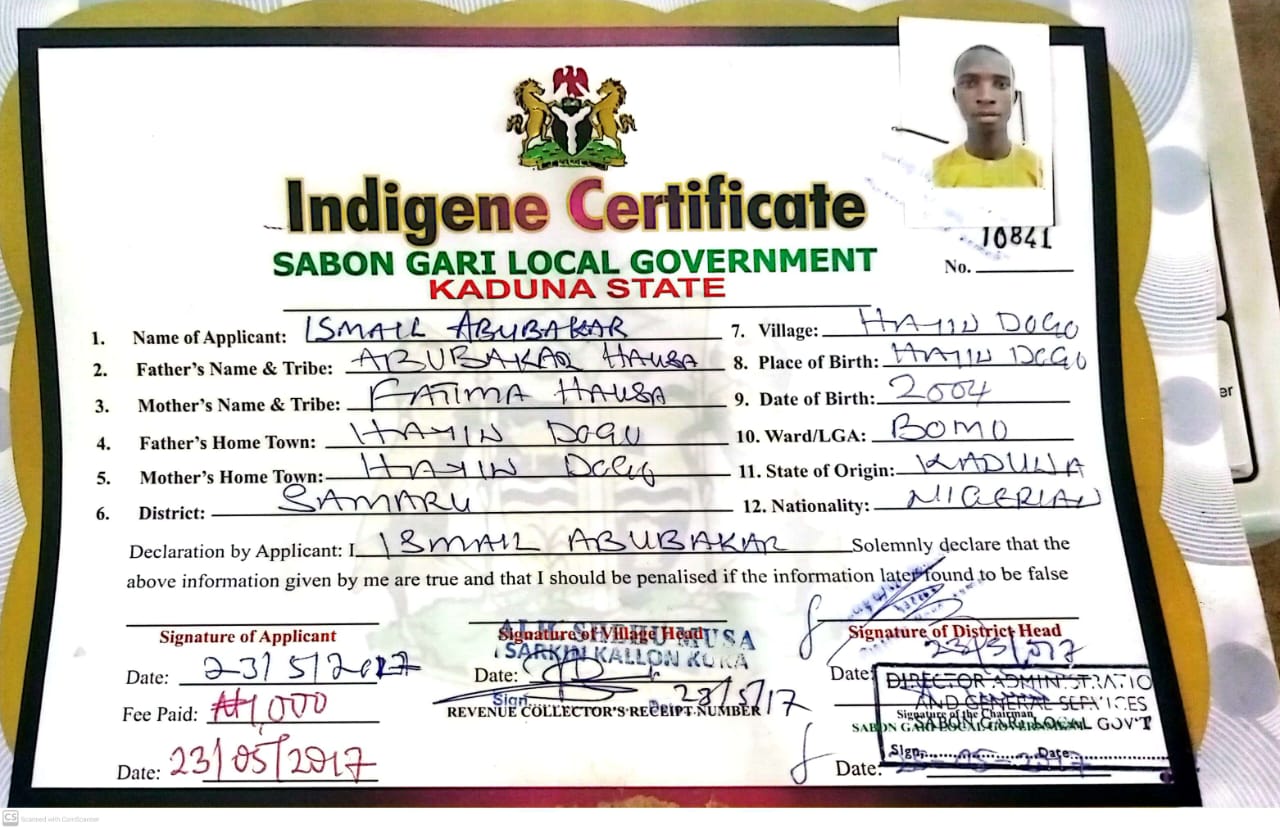 Indigene Certificate
SABON GARI LOCAL GOVERNMENT
KADUNA STATE
10841
No.
1. Name of Applicant: ISMAIL ABUBAKAR
2. Father's Name & Tribe: ABUBAKAR HAUSA
3. Mother's Name & Tribe: FATIMA HAUSA
4. Father's Home Town: HAYIN DOGO
5. Mother's Home Town: HAYIN DOGO
6. District: SAMARU
7. Village: HAYIN DOGO
8. Place of Birth: HAYIN DOGO
9. Date of Birth: 2004
10. Ward/LGA: BOMO
11. State of Origin: KADUNA
12. Nationality: NIGERIAN
Declaration by Applicant: I ISMAIL ABUBAKAR Solemnly declare that the
above information given by me are true and that I should be penalised if the information later found to be false
Signature of Applicant
Date: 23/5/2017
Fee Paid: ₦1,000
Date: 23/05/2017
Signature of Village Head
MUSA
SARKIN KALLON KUKA
Date:
Sign
23/5/17
REVENUE COLLECTOR'S RECEIPT NUMBER
Signature of District Head
Date: 23/5/2017
DIRECTOR ADMINISTRATIO
AND GENERAL SERVICES
Signature of the Chairman
SABON GARI LOCAL GOV'T
SABON GARI LOCAL GOVERNMENT
Sign Date
Date:
er
CS Scanned with CamScanner